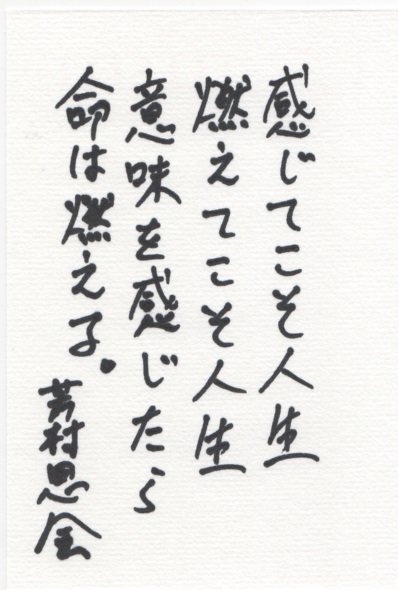 感じてこそ人生
燃えてこそ人生
意味を感じたら
命は燃える。
芳村思風